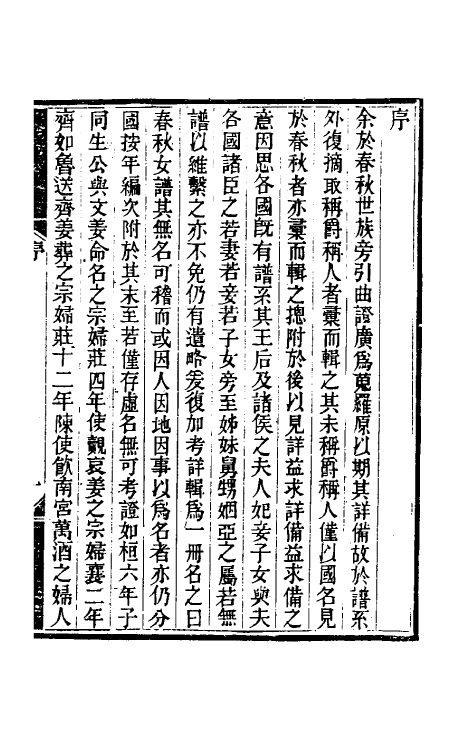 序
余於春秋世族旁引曲證廣爲蒐羅原以期其詳備故於譜系
外復摘取稱爵稱人者彚而輯之其未稱爵稱人僅以國名見
於春秋者亦彚而輯之摠附於後以見詳益求詳備益求備之
意因思各國旣有譜系其王后及諸侯之夫人妃妾子女與夫
各國諸臣之若妻若妾若子女旁至姊妹舅甥姻亞之屬若無
譜以維繫之亦不免仍有遺略爰復加考詳輯爲一冊名之曰
春秋女譜其無名可稽而或因人因地因事以爲名者亦仍分
國按年編次附於其末至若僅存虛名無可考證如桓六年子
同生公與文姜命名之宗婦莊四年使覿哀姜之宗婦襄二年
齊如魯送齊姜葬之宗婦莊十二年陳使飮南宮萬酒之婦人
序